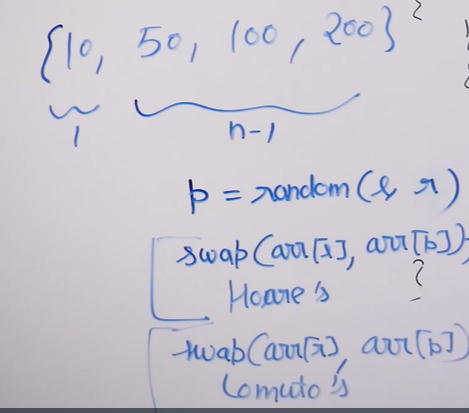 {10, 50, 100, 200}
1 n-1
p = random(l, r)
swap(arr[l], arr[p])
Hoare's
swap(arr[r], arr[p])
Lomuto's